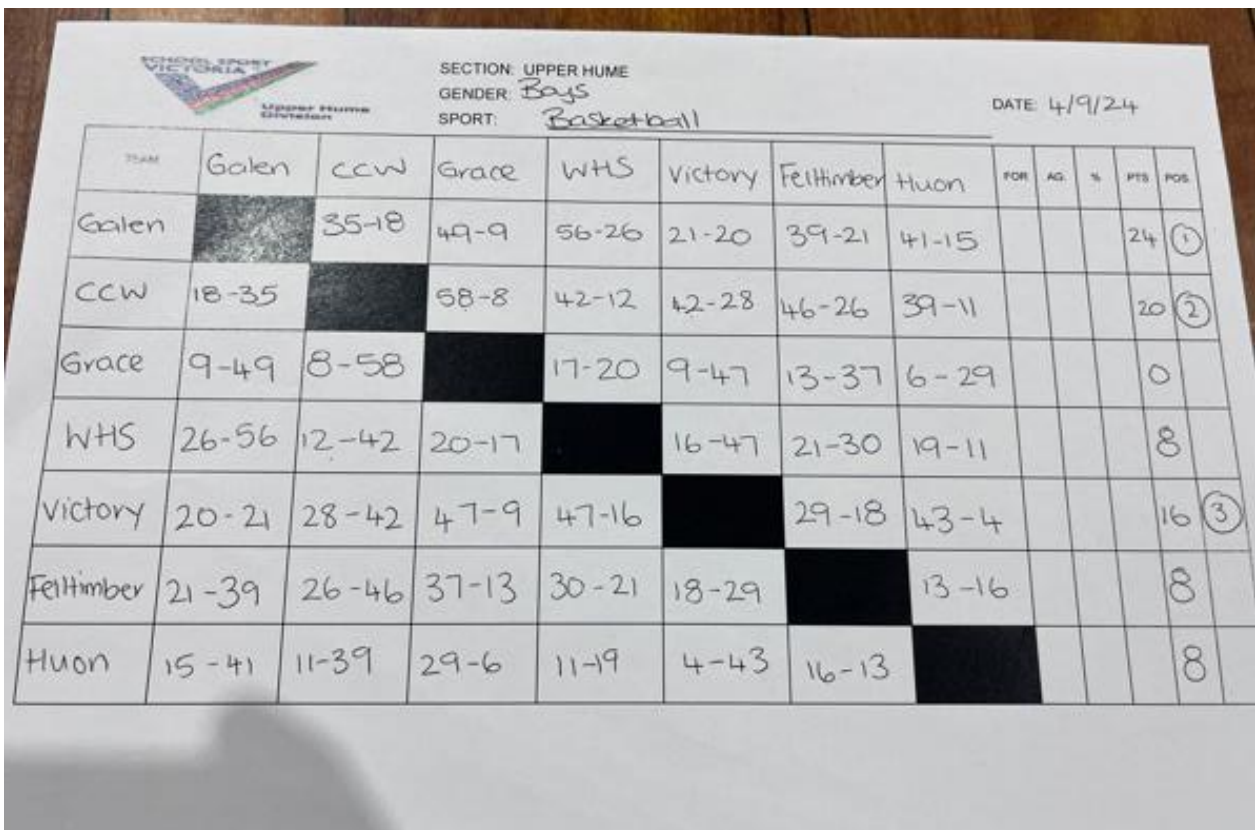 SCHOOL SPORT
VICTORIA
Upper Hume
Division
SECTION: UPPER HUME
GENDER: Boys
SPORT: Basketball
DATE: 4/9/24
TEAM Galen CCW Grace WHS Victory Felltimber Huon FOR AG % PTS POS
Galen 35-18 49-9 56-26 21-20 39-21 41-15 24 1
CCW 18-35 58-8 42-12 42-28 46-26 39-11 20 2
Grace 9-49 8-58 17-20 9-47 13-37 6-29 0
WHS 26-56 12-42 20-17 16-47 21-30 19-11 8
Victory 20-21 28-42 47-9 47-16 29-18 43-4 16 3
Felltimber 21-39 26-46 37-13 30-21 18-29 13-16 8
Huon 15-41 11-39 29-6 11-19 4-43 16-13 8